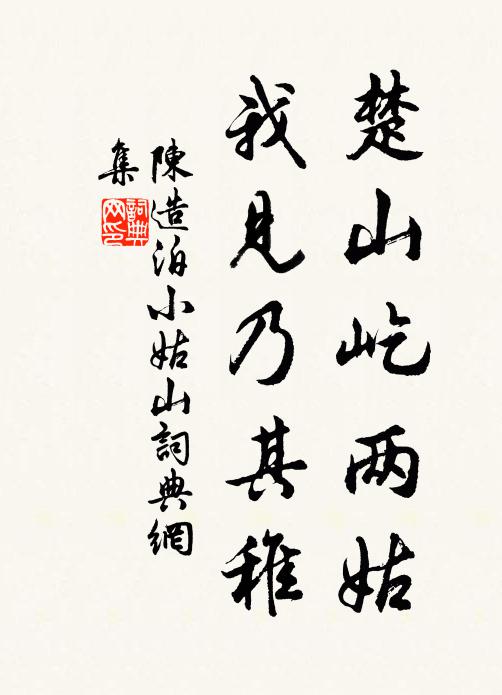 楚山屹两姑
我見乃其稚
陳造泊小姑山詞典網
集
詞典網印